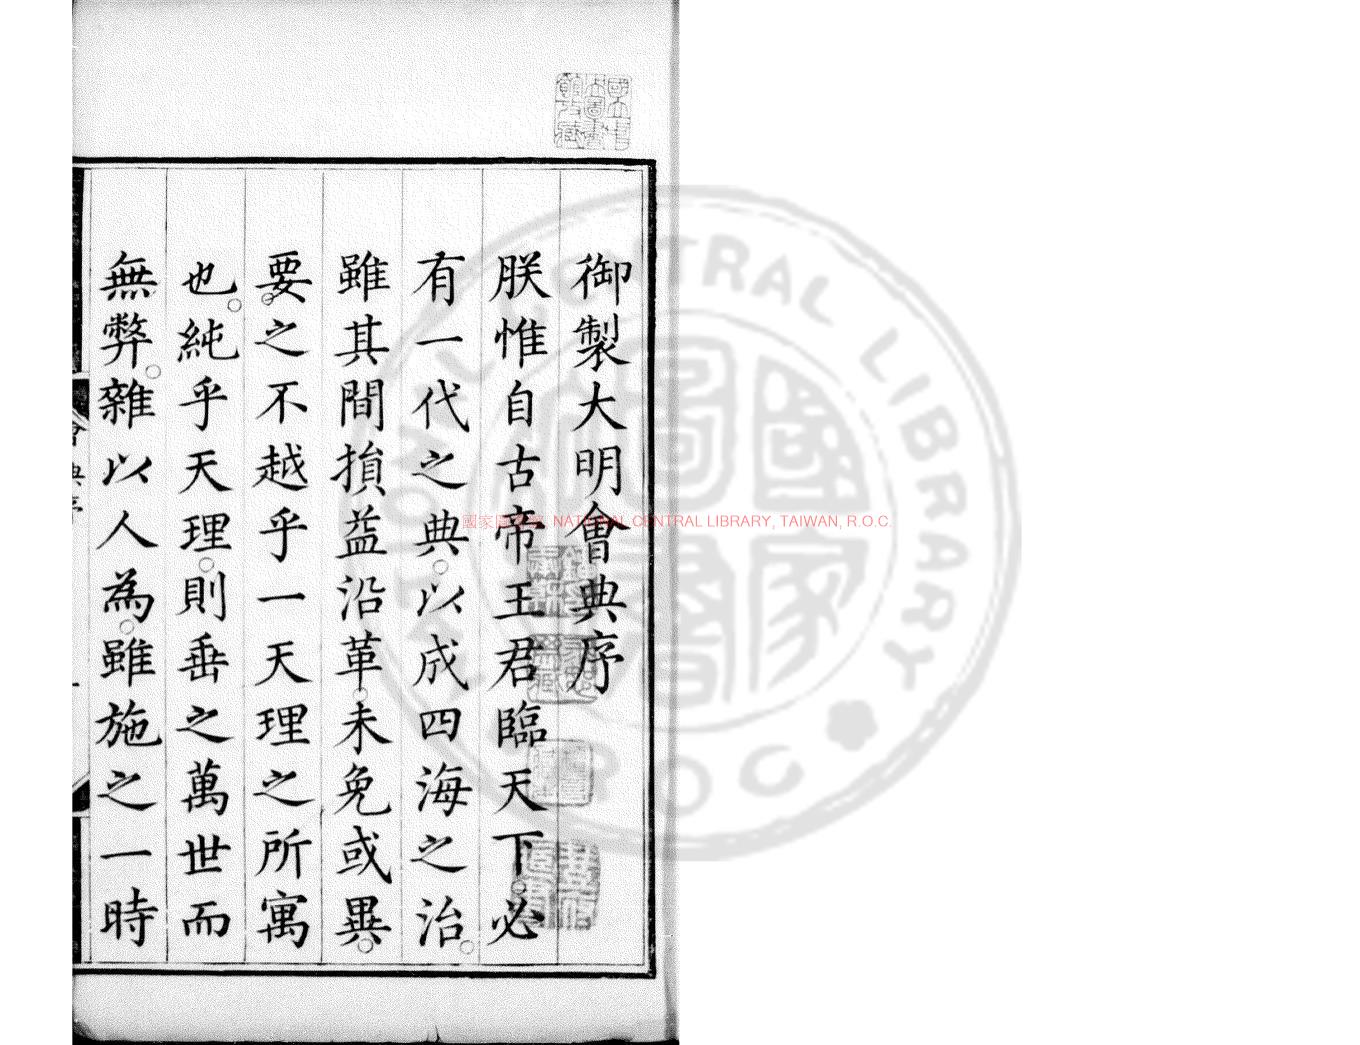 御製大明會典序
朕惟自古帝王君臨天下必
有一代之典以成四海之治
雖其間損益沿革未免或異
要之不越乎一天理之所寓
也純乎天理則垂之萬世而
無弊雜以人為雖施之一時
會典序
一
國家圖書館 NATIONAL CENTRAL LIBRARY, TAIWAN, R.O.C.
NATIONAL CENTRAL LIBRARY
R O C
國家圖書